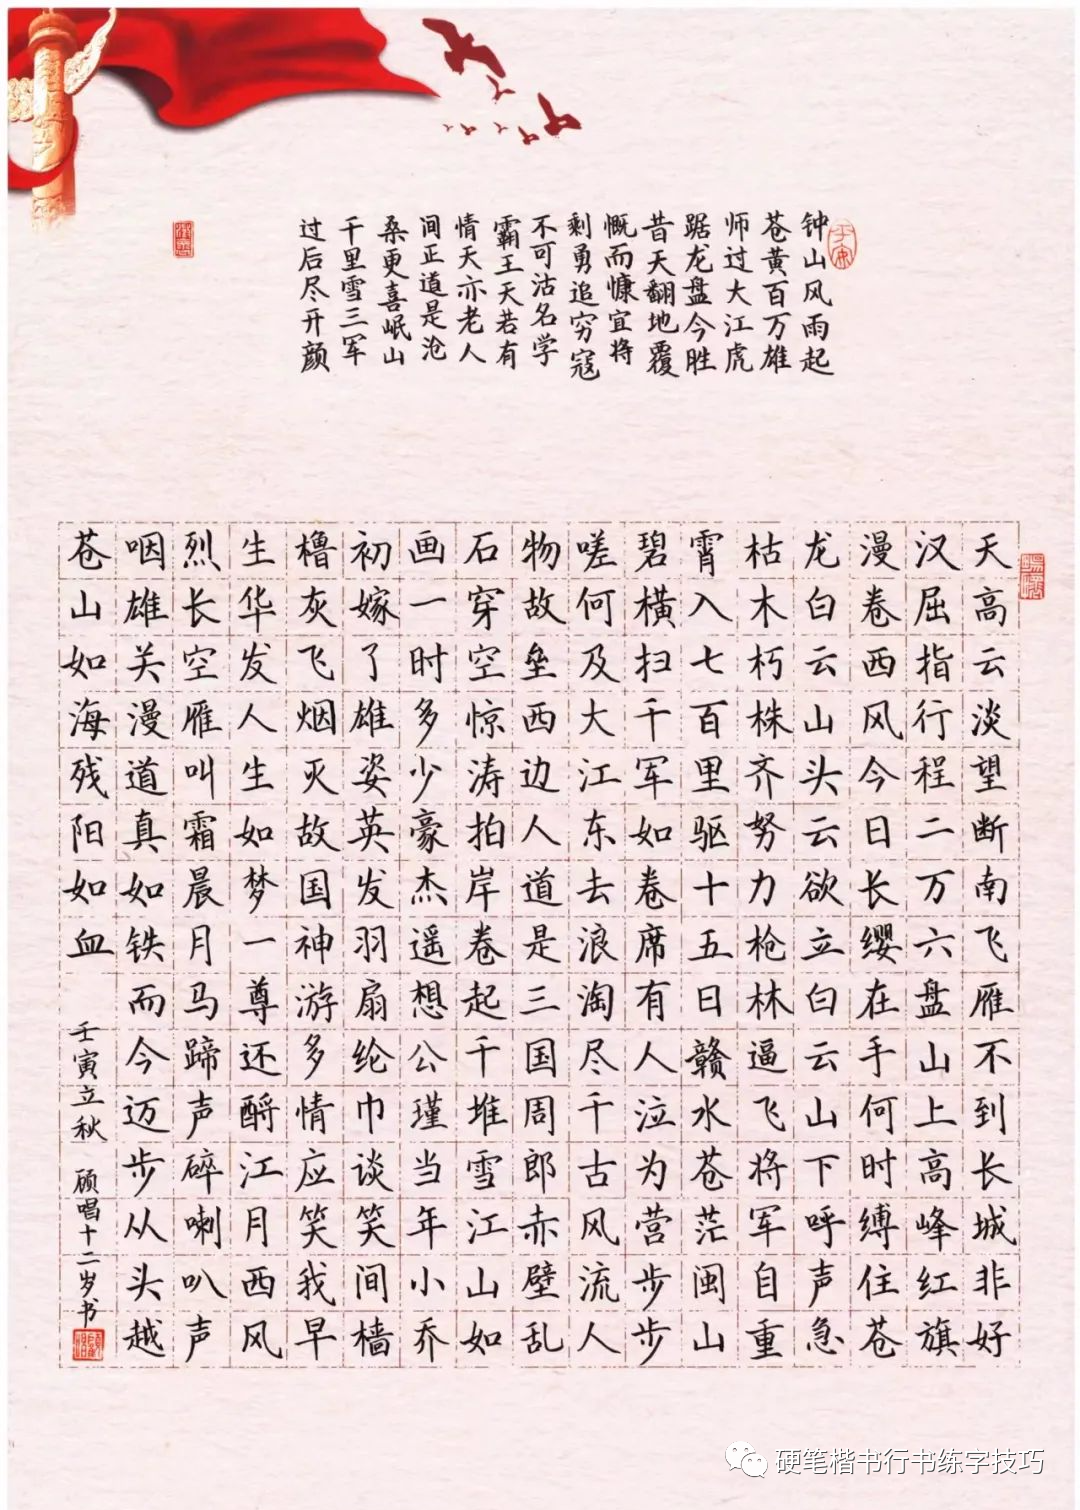 钟山风雨起
苍黄百万雄
师过大江虎
踞龙盘今胜
昔天翻地覆
慨而慷宜将
剩勇追穷寇
不可沽名学
霸王天若有
情天亦老人
间正道是沧
桑更喜岷山
千里雪三军
过后尽开颜
天高云淡望断南飞雁不到长城非好
汉屈指行程二万六盘山上高峰红旗
漫卷西风今日长缨在手何时缚住苍
龙白云山头云欲立白云山下呼声急
枯木朽株齐努力枪林逼飞将军自重
霄入七百里驱十五日赣水苍茫闽山
碧横扫千军如卷席有人泣为营步步
嗟何及大江东去浪淘尽千古风流人
物故垒西边人道是三国周郎赤壁乱
石穿空惊涛拍岸卷起千堆雪江山如
画一时多少豪杰遥想公瑾当年小乔
初嫁了雄姿英发羽扇纶巾谈笑间樯
橹灰飞烟灭故国神游多情应笑我早
生华发人生如梦一尊还酹江月西风
烈长空雁叫霜晨月马蹄声碎喇叭声
咽雄关漫道真如铁而今迈步从头越
苍山如海残阳如血
壬寅立秋 顾唱十二岁书
硬笔楷书行书练字技巧